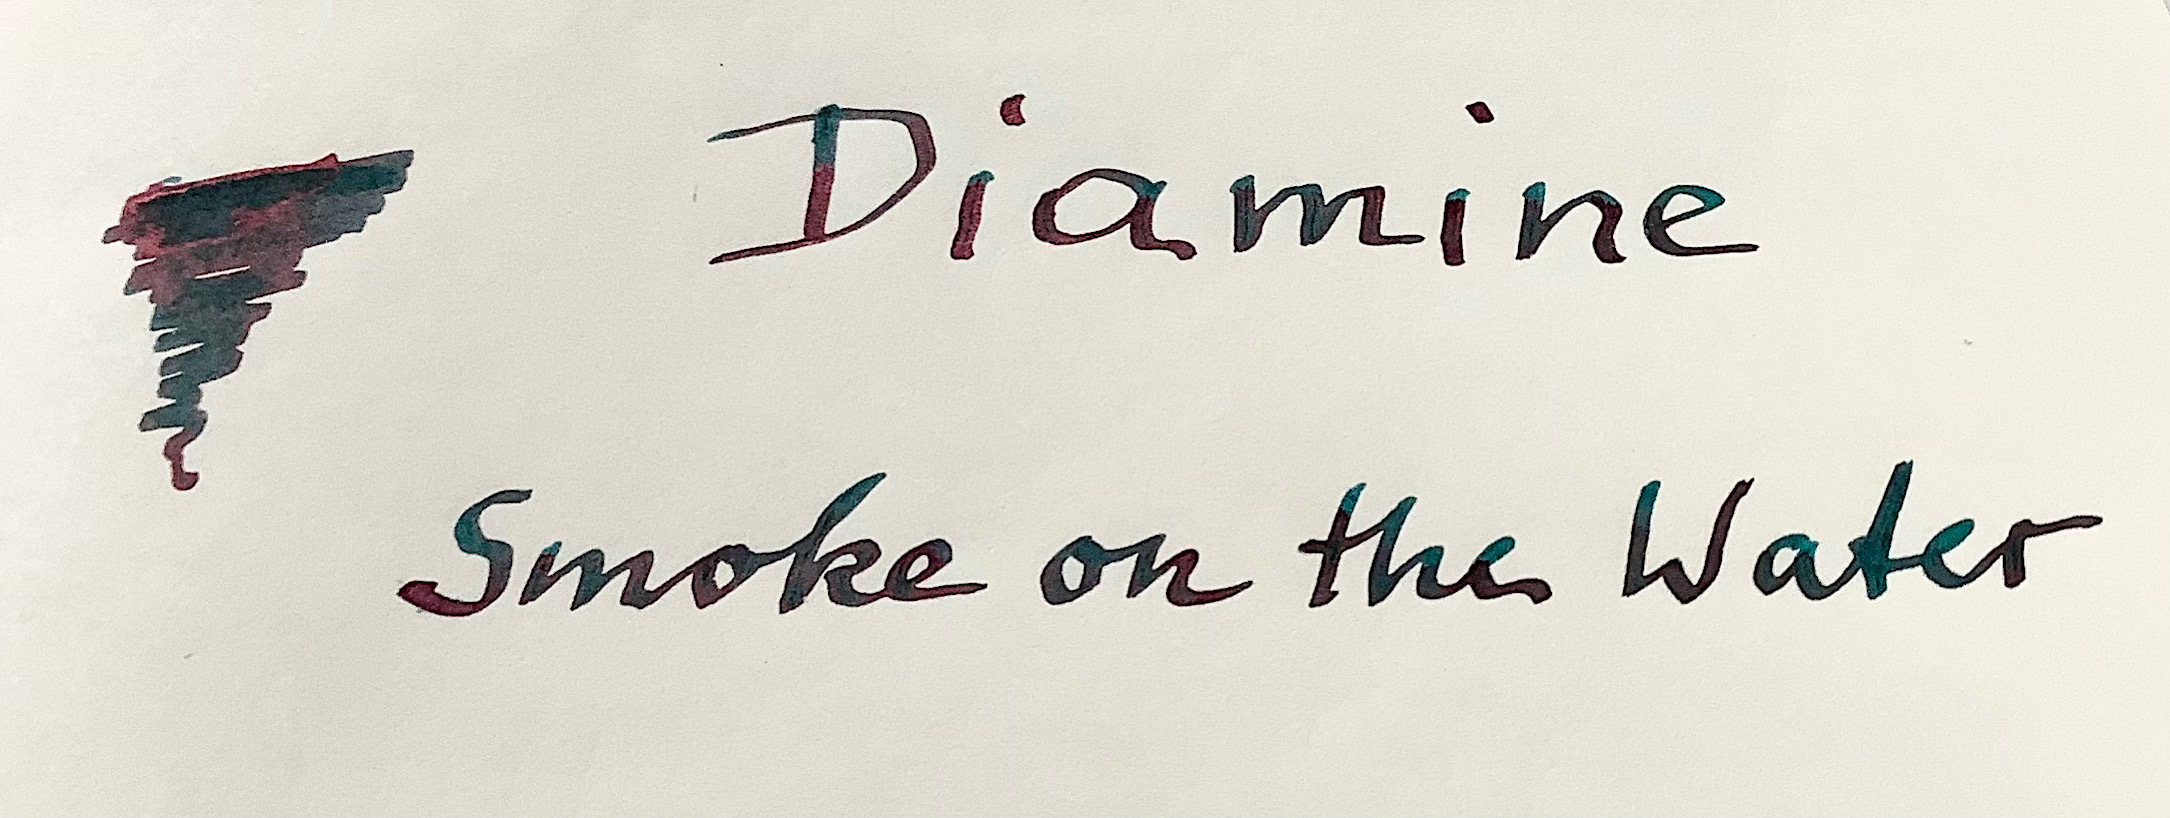 Diamine
Smoke on the Water